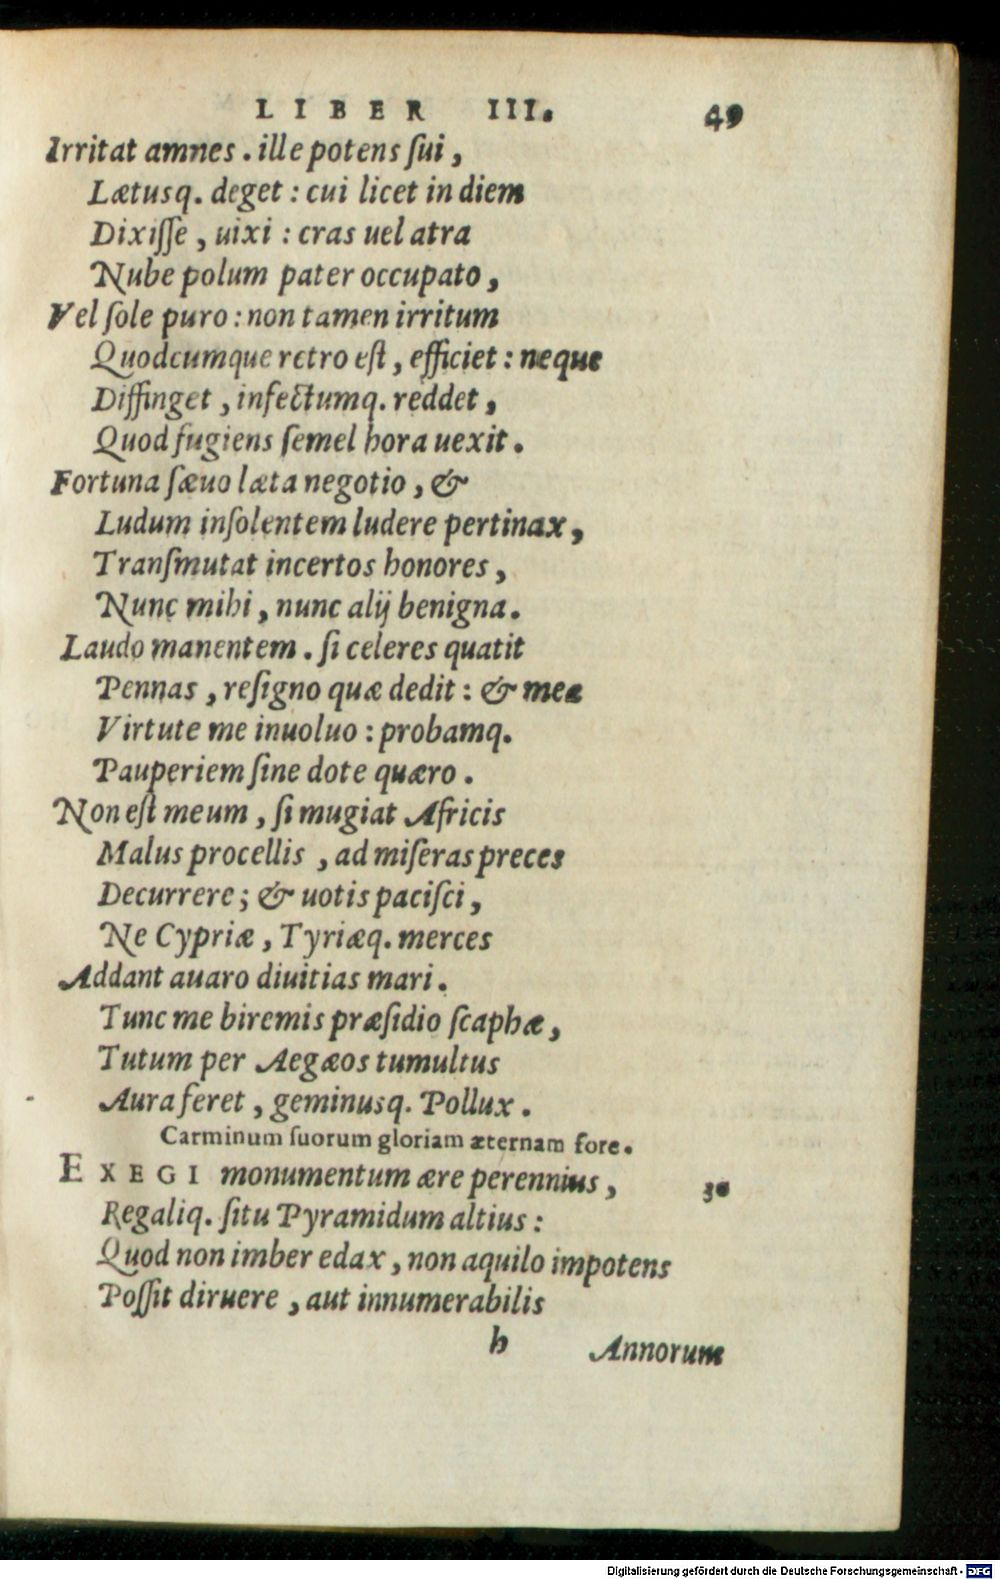 LIBER III. 49
Irritat amnes. ille potens ſui,
Lætusq. deget: cui licet in diem
Dixiſſe, uixi: cras uel atra
Nube polum pater occupato,
Vel ſole puro: non tamen irritum
Quodcumque retro eſt, efficiet: neque
Diffinget, infectumq. reddet,
Quod fugiens ſemel hora uexit.
Fortuna ſæuo læta negotio, &
Ludum inſolentem ludere pertinax,
Tranſmutat incertos honores,
Nunc mihi, nunc alij benigna.
Laudo manentem. ſi celeres quatit
Pennas, reſigno quæ dedit: & mea
Virtute me inuoluo: probamq.
Pauperiem ſine dote quæro.
Non eſt meum, ſi mugiat Africis
Malus procellis, ad miſeras preces
Decurrere; & uotis paciſci,
Ne Cypriæ, Tyriæq. merces
Addant auaro diuitias mari.
Tunc me biremis præſidio ſcaphæ,
Tutum per Aegæos tumultus
Aura feret, geminusq. Pollux.
Carminum ſuorum gloriam æternam fore.
EXEGI monumentum ære perennius, 30
Regaliq. ſitu Pyramidum altius:
Quod non imber edax, non aquilo impotens
Poſſit diruere, aut innumerabilis
h Annorum
Digitalisierung gefördert durch die Deutsche Forschungsgemeinschaft - DFG